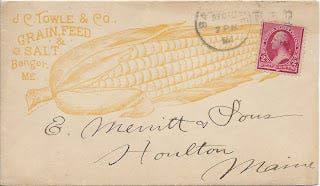 J.C. TOWLE & CO.,
GRAIN, FEED
&
SALT
Bangor,
ME.
7 PM
E. Merritt & Sons
Houlton
Maine